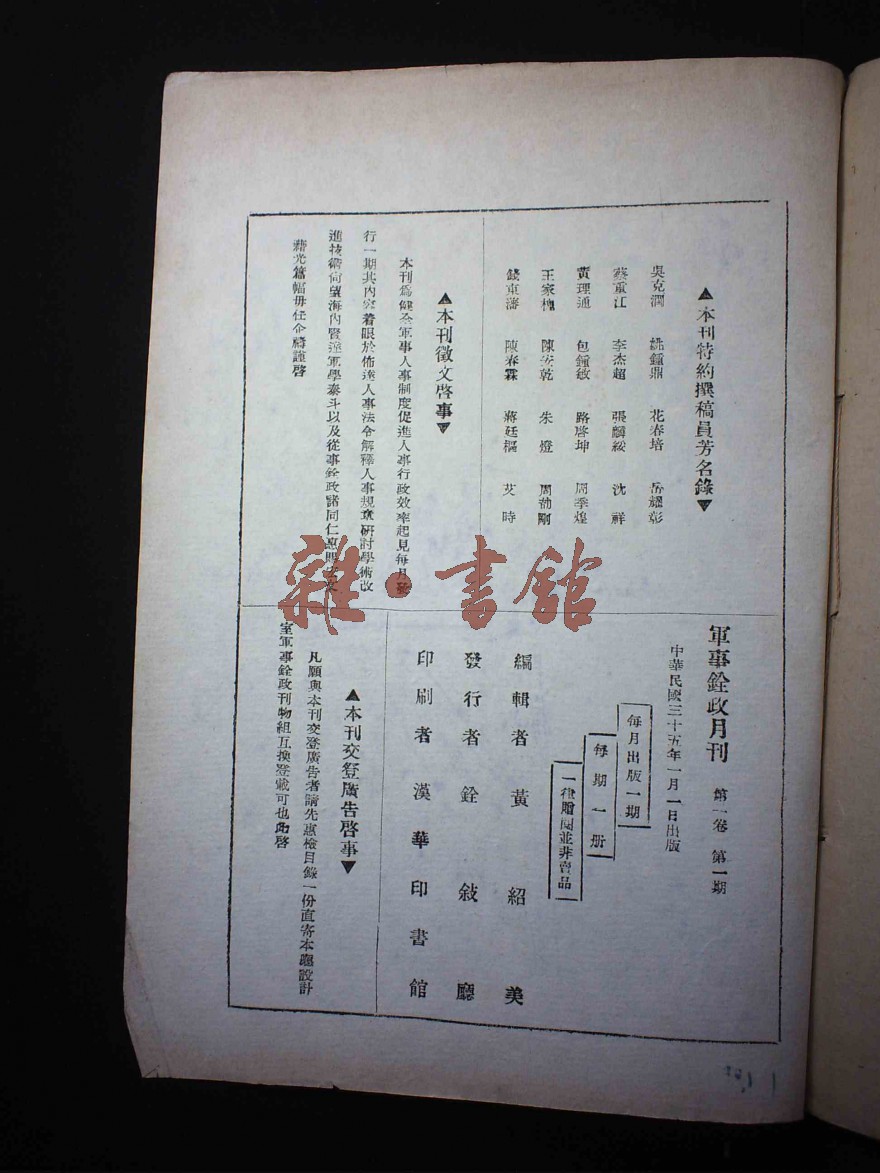 ▲本刊特約撰稿員芳名錄▼
吳克潤 姚鍾鼎 花春培 岳耀彰
蔡重江 李杰超 張麟綏 沈祥
黃理通 包鍾敏 路啓坤 周季煌
王家槐 陳安乾 朱燈 周勃剛
錢東藩 陳春霖 蔣廷樞 艾時
▲本刊徵文啓事▼
本刊爲健全軍事人事制度促進人事行政效率起見每月發
行一期其內容着眼於佈達人事法令解釋人事規章研討學術改
進技術尙望海內賢達軍學泰斗以及從事銓政諸同仁惠賜
藉光篇幅毋任企禱謹啓
軍事銓政月刊 第一卷 第一期
中華民國三十五年一月一日出版
每月出版一期
每期一册
一律贈閱並非賣品
編輯者 黃紹美
發行者 銓敍廳
印刷者 漢華印書館
▲本刊交登廣告啓事▼
凡願與本刊交登廣告者請先惠檢目錄一份直寄本廳設計
室軍事銓政刊物組互換登載可也此啓
雜·書館